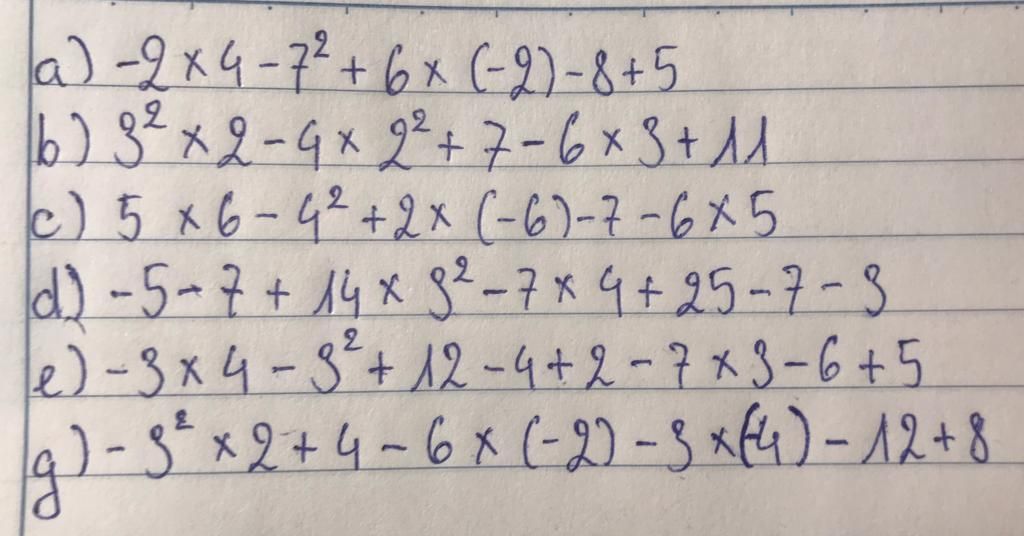 a) -2 × 4 - 7² + 6 × (-2) - 8 + 5
b) 3² × 2 - 4 × 2² + 7 - 6 × 3 + 11
c) 5 × 6 - 4² + 2 × (-6) - 7 - 6 × 5
d) -5 - 7 + 14 × 3² - 7 × 4 + 25 - 7 - 3
e) -3 × 4 - 3² + 12 - 4 + 2 - 7 × 3 - 6 + 5
g) -3² × 2 + 4 - 6 × (-2) - 3 × (-4) - 12 + 8